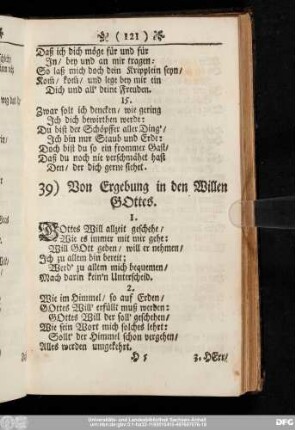 ( 121 )
Daß ich dich möge für und für
In / bey und an mir tragen:
So laß mich doch dein Kripplein seyn /
Kom̃ / kom̃ / und lege bey mir ein
Dich und all' deine Freuden.
15.
Zwar solt ich dencken / wie gering
Ich dich bewirthen werde:
Du bist der Schöpffer aller Ding' /
Ich bin nur Staub und Erde:
Doch bist du so ein frommer Gast /
Daß du noch nie verschmähet hast
Den / der dich gerne siehet.
39) Von Ergebung in den Willen
GOttes.
1.
GOttes Will allzeit geschehe /
Wie es immer mit mir gehe:
Will GOtt geben / will er nehmen /
Ich zu allem bin bereit;
Werd' zu allem mich bequemen /
Mach darin kein'n Unterscheid.
2.
Wie im Himmel / so auf Erden /
GOttes Will' erfüllt muß werden:
GOttes Will der soll' geschehen /
Wie sein Wort mich solches lehrt:
Sollt' der Himmel schon vergehen /
Alles werden umgekehrt.
3. HErr /